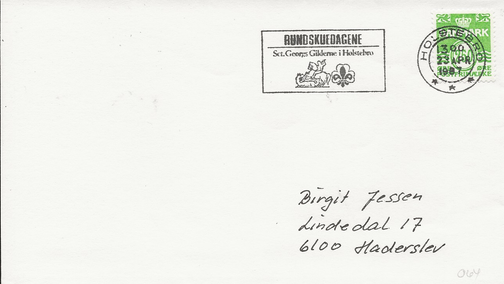 RUNDSKUEDAGENE
Sct. Georgs Gilderne i Holstebro
HOLSTEBRO
1300
23 APR
1987
ØRE
Birgit Jessen
Lindedal 17
6100 Haderslev